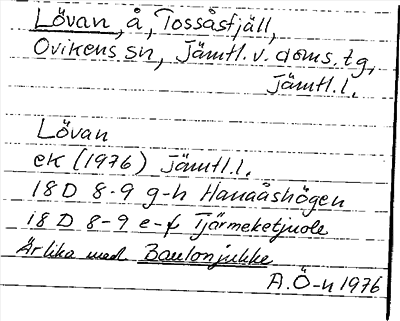 Lövan, å, Tossåsfjäll,
Ovikens sn, Jämtl. v. doms. tg,
Jämtl. l.
Lövan
ek (1976) Jämtl. l.
18 D 8-9 g-h Hanaåshögen
18 D 8-9 e-f Tjärmeketjuole
Är lika med Baulonjukke
A. Ö-n 1976